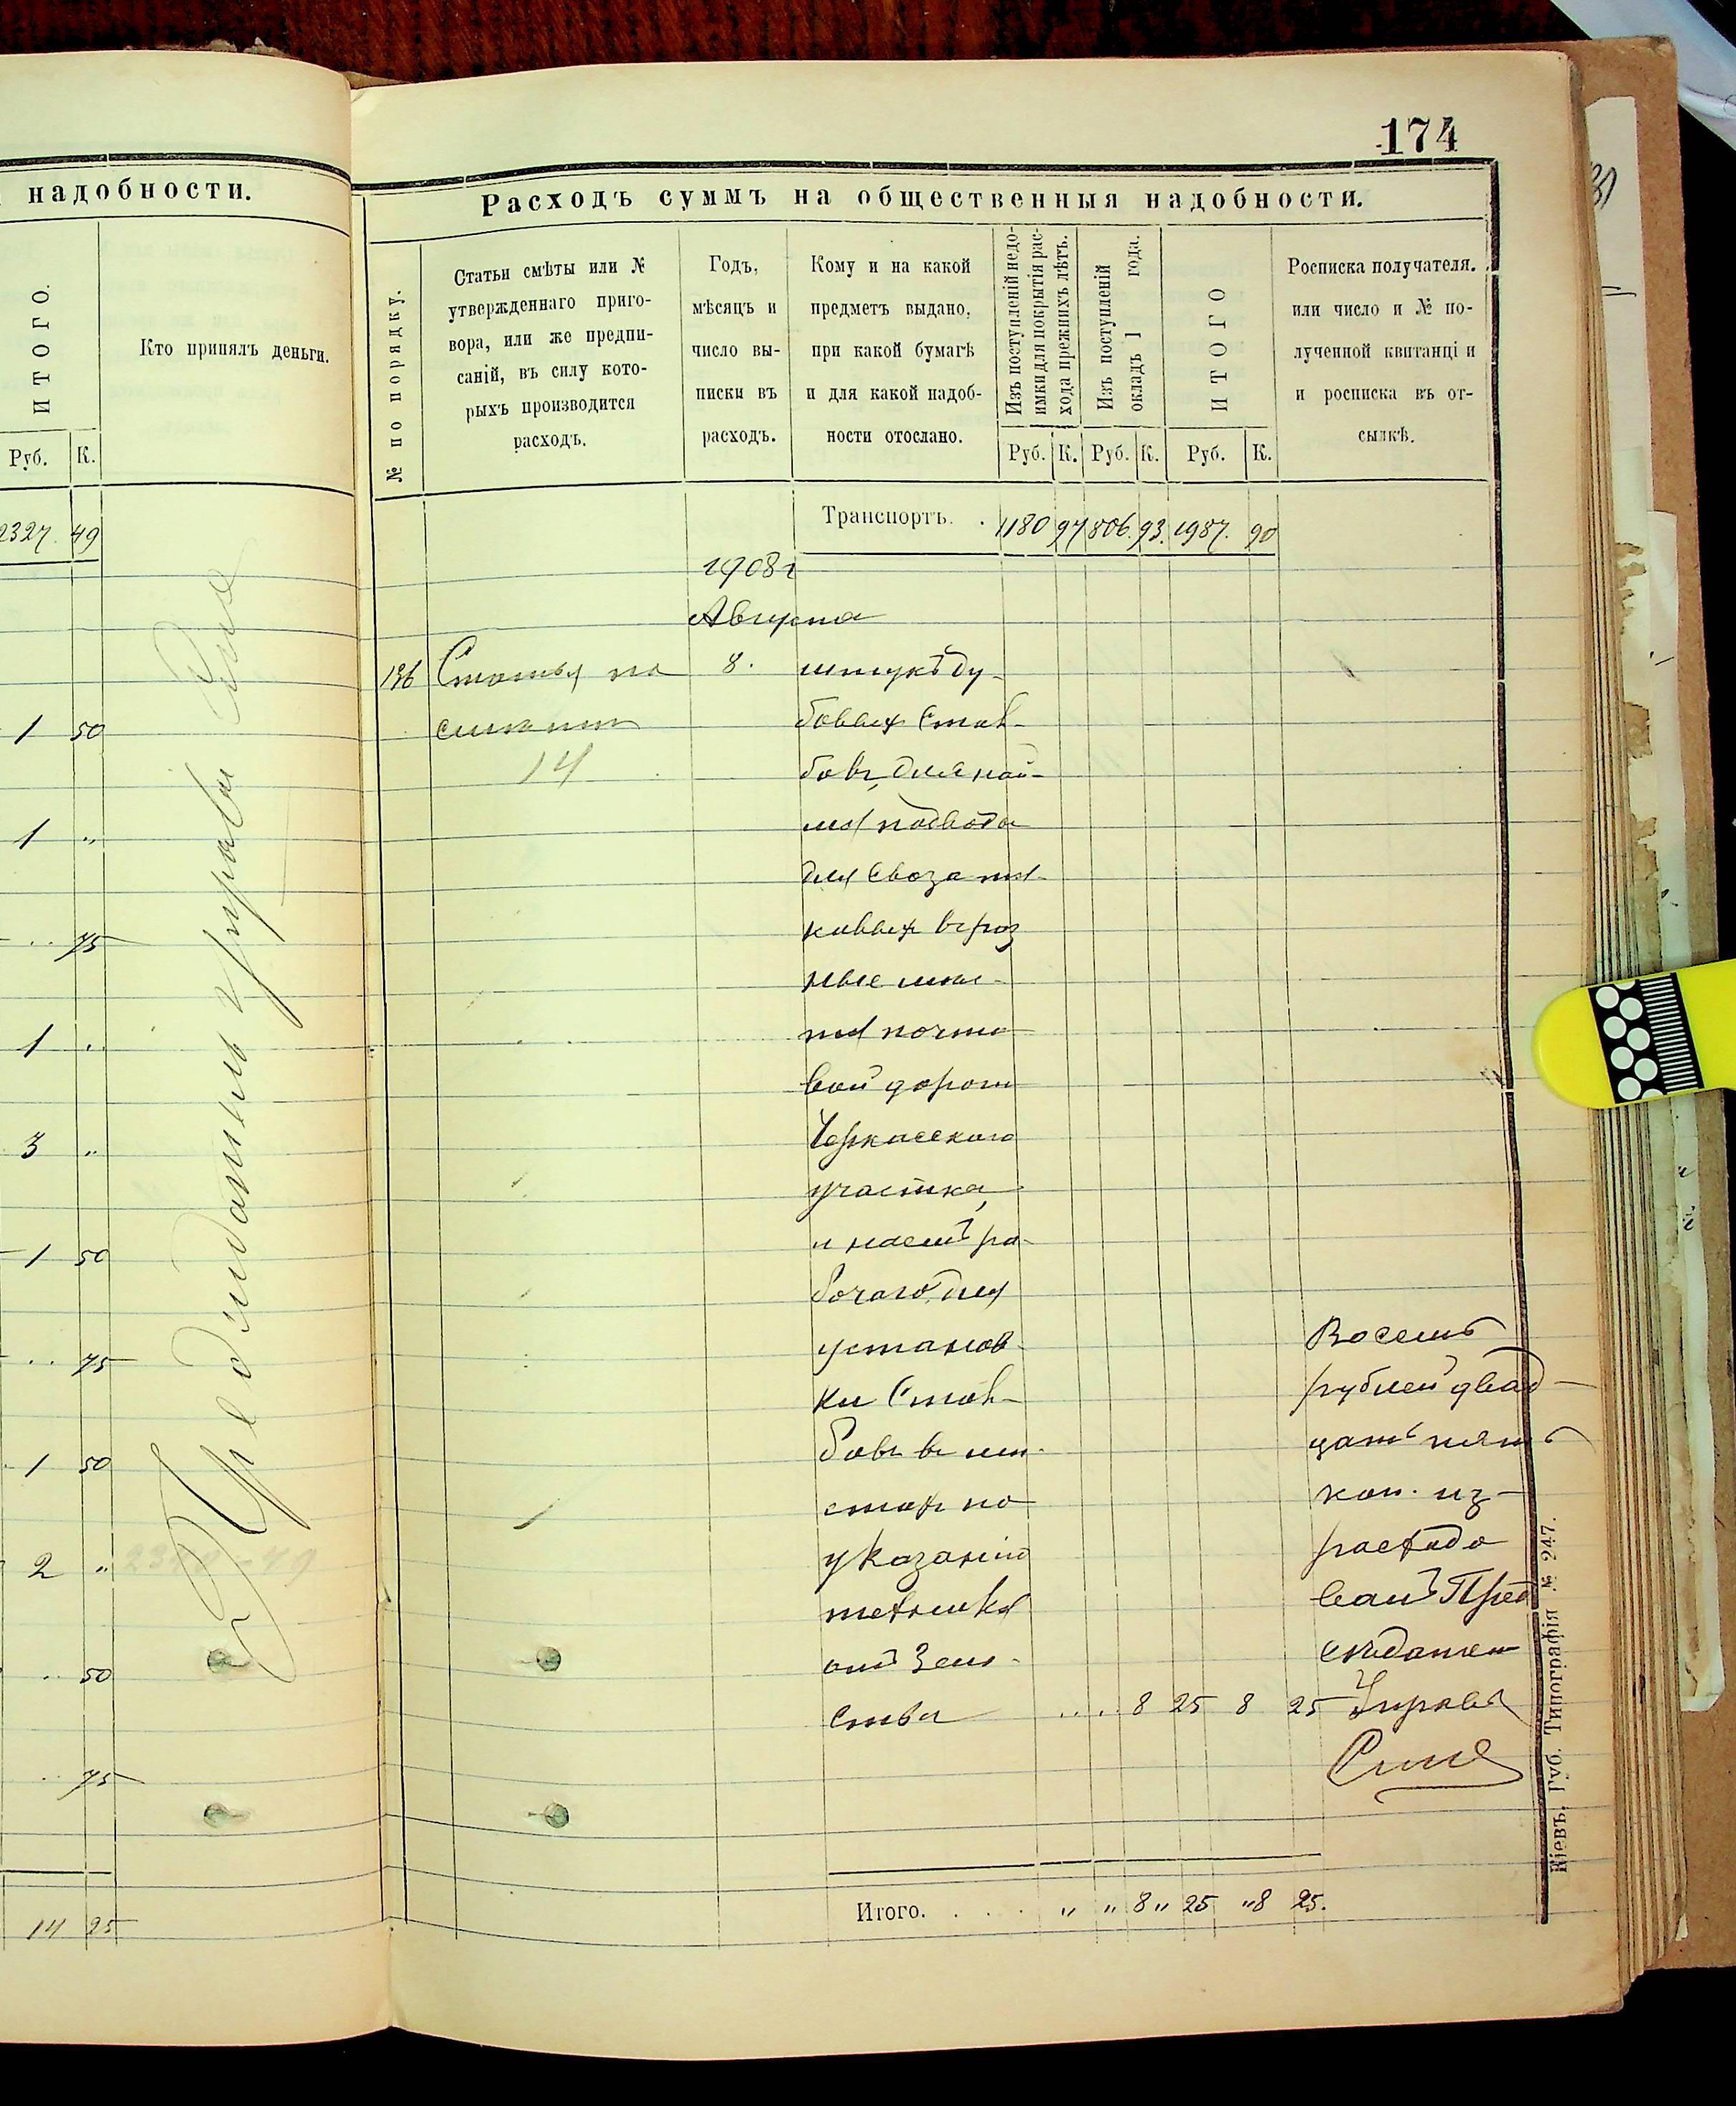 надобности.
ИТОГО.
Кто принялъ деньги.
Руб. К.
2327 49
1 50
1 "
.. 75
1 "
3 "
1 50
.. 75
1 50
2 "
.. 50
.. 75
14 25
Предсѣдатель Управы
174
Расходъ суммъ на общественныя надобности.
№ по порядку.
Статьи смѣты или №
утвержденнаго приго-
вора, или же предпи-
саній, въ силу кото-
рыхъ производится
расходъ.
Годъ,
мѣсяцъ и
число вы-
писки въ
расходъ.
Кому и на какой
предметъ выдано,
при какой бумагѣ
и для какой надоб-
ности отослано.
Изъ поступленій недо-
имки для покрытія рас-
хода прежнихъ лѣтъ.
Изъ поступленій
окладъ 1 года.
ИТОГО
Росписка получателя.
или число и № по-
лученной квитанціи
и росписка въ от-
сылкѣ.
Руб. К. Руб. К. Руб. К.
Транспортъ. . 1180 97 806. 93. 1987. 90
1908 г
Августа
196 Статья по 8. штукъ ду-
бовыхъ стол-
14
бовъ, для най-
ма подводы
для своза та-
ковыхъ въ раз
ные мѣс-
та почто
вой дороги
Черкасскаго
участка,
и наемъ ра-
бочаго для
установ-
ки стол-
бовъ въ мѣ-
стахъ по
указанію
техника
отъ Зем-
ства .... 8 25 8 25
Восемь
рублей двад-
цать пять
коп. из-
расходо
валъ Пред
сѣдатель
Управы
Итого. . . . " " 8 " 25 " 8 25.
Кіевъ, Губ. Типографія № 247.